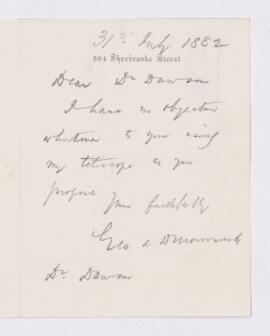 31st July 1882
864 Sherbrooke Street
Dear Dr Dawson
I have no objection
whatever to your using
my telescope as you
propose
Yours faithfully
Geo A Drummond
Dr. Dawson